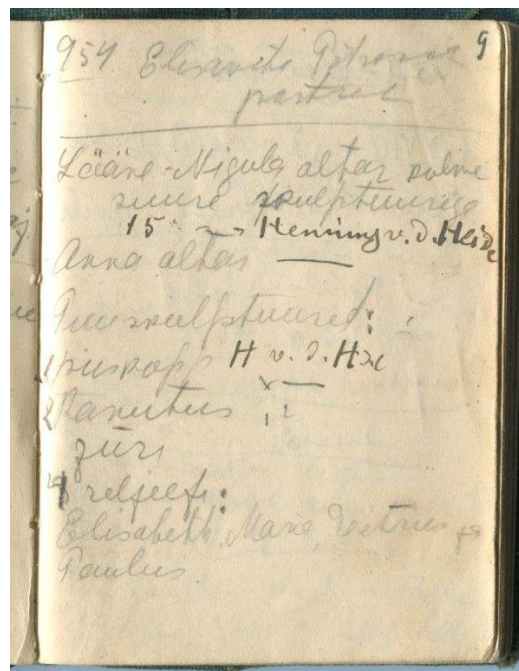 9
954 Elisaveta Petrovna
portree
Lääne-Nigula altar kolme
suure skulptuuriga
15 Henning v. d. Heide
Anna altar —
Puuskulptuured:
1 piiskopp H v. d. Hde
2 Kanutus "
Jüri
4 reljeefi:
Elisabeth, Maria, Petrus ja
Paulus.